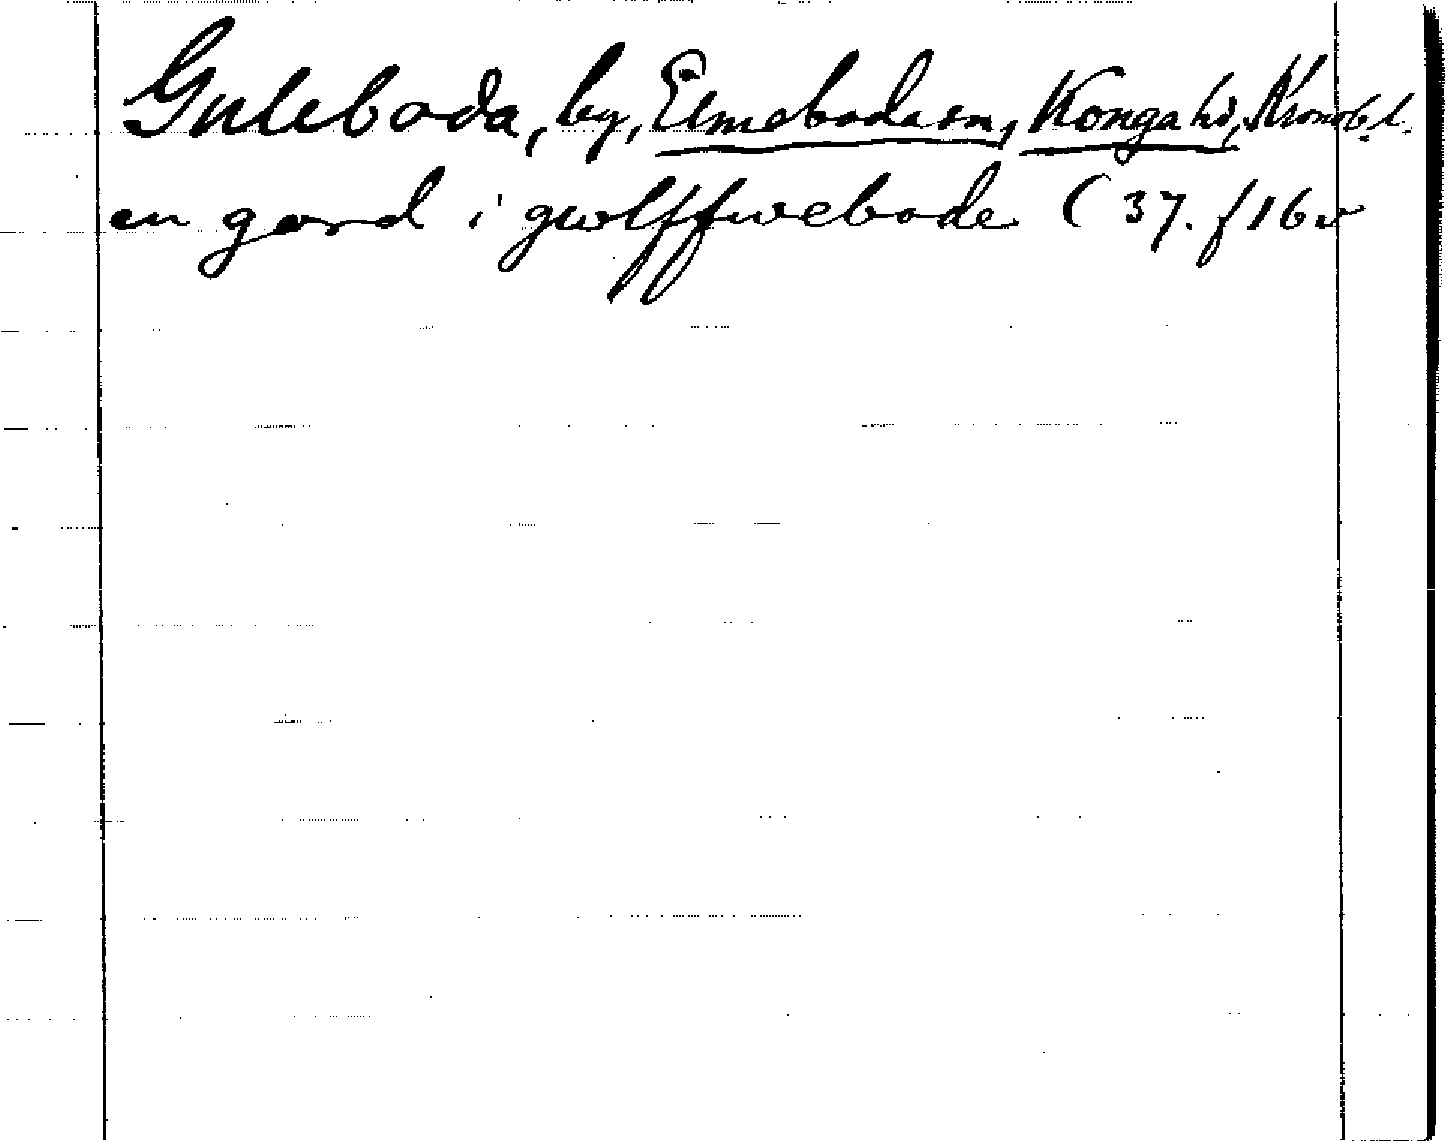 Guleboda, by, Elmeboda sn, Konga hd, Kronob. l.
en gord i gwlffwebode (37. f 16v